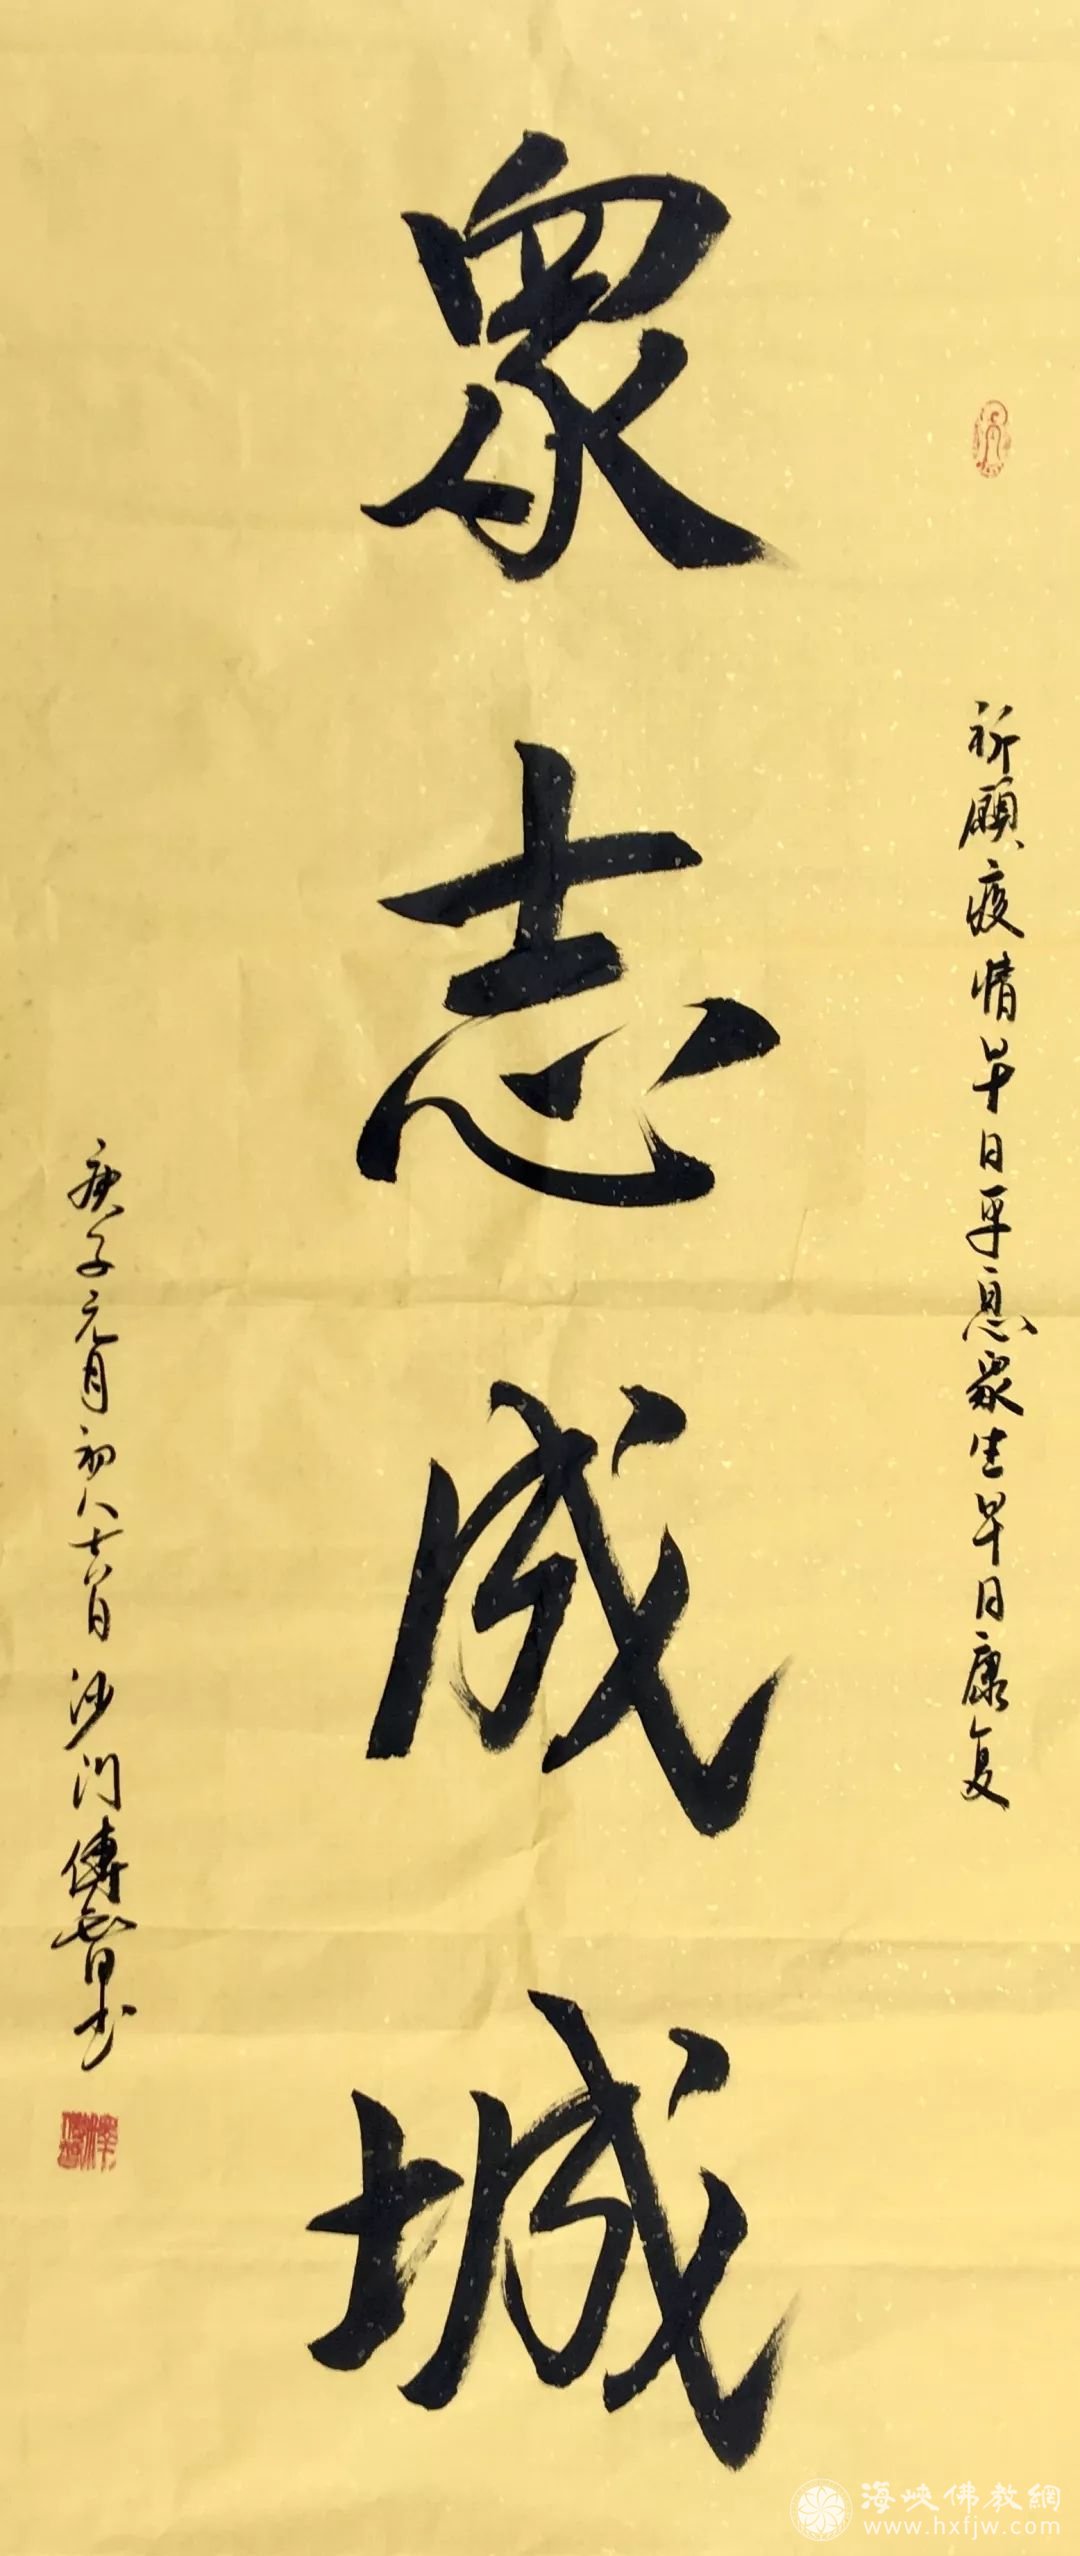 祈願疫情早日平息眾生早日康复
眾志成城
庚子元月初八
日沙門傳智书
海峡佛教網
www.hxfjw.com